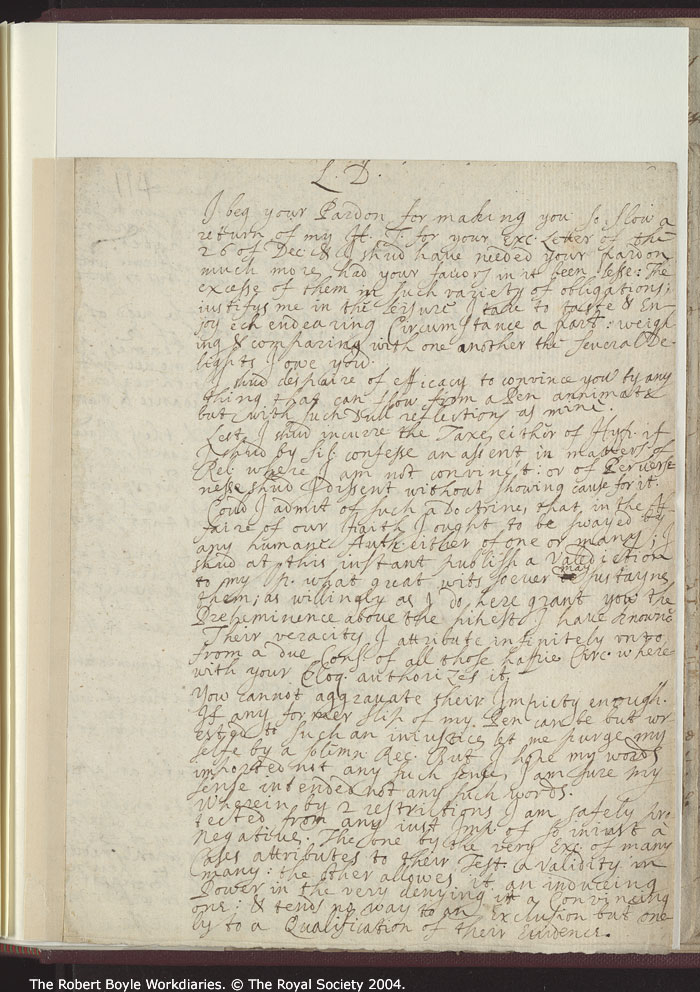 L. D.
I beg your Pardon for making you so slow a
returne of my Ht. T. for your Exc. Letter of the
26 of Dec: & I shud have needed your Pardon
much more, had your favors in it been lesse: The
excesse of them in such variety of obligations;
justifys me in the leisure I take to taste & En-
joy ech endearing Circumstance a part: weigh
ing & comparing with one another the severall De-
lights I owe you.
I shud despaire of efficacy to convince you by any
thing that can flow from a Pen annimated
but with such dull reflections as mine.
Lest I shud incurre the Taxe, either of Hyp. if
I shud by sil: confesse an assent in matters of
Rel: where I am not convinst: or of Perverse
nesse shud I dissent without showing cause for it.
Coud I admit of such a Doctrine, that in the Af-
faire of our Faith I ought to be swayed by
any humane Auth: either of one or many; I
shud at this instant publish a Valediction
to my Op. what great wits soever may sustayne
them; as willingly as I do here grant you the
Preheminence above the hihest I have knowne
Their veracity I attribute infinitely unto
from a due Cons: of all those happie Circ. where
with your Eloq. authorizes it.
You cannot aggravate their Impiety enough.
If any former slip of my Pen can be but wr
ested to such an injustice let me purge my
selfe by a solemn Rec. But I hope my words
imported not any such sense, I am sure my
sense intended not any such words.
Wherein by 2 restrictions I am safely pro
tected from any just Imp. of so iniust a
Negative. The one by the very Exc. of many
Cases attributes to their Test. a validity in
many: the other allowes it an inducing
Power in the very denying it a Convincing
one: & tends no way to an Exclusion but one
ly to a Qualification of their Evidence.
The Robert Boyle Workdiaries. © The Royal Society 2004.